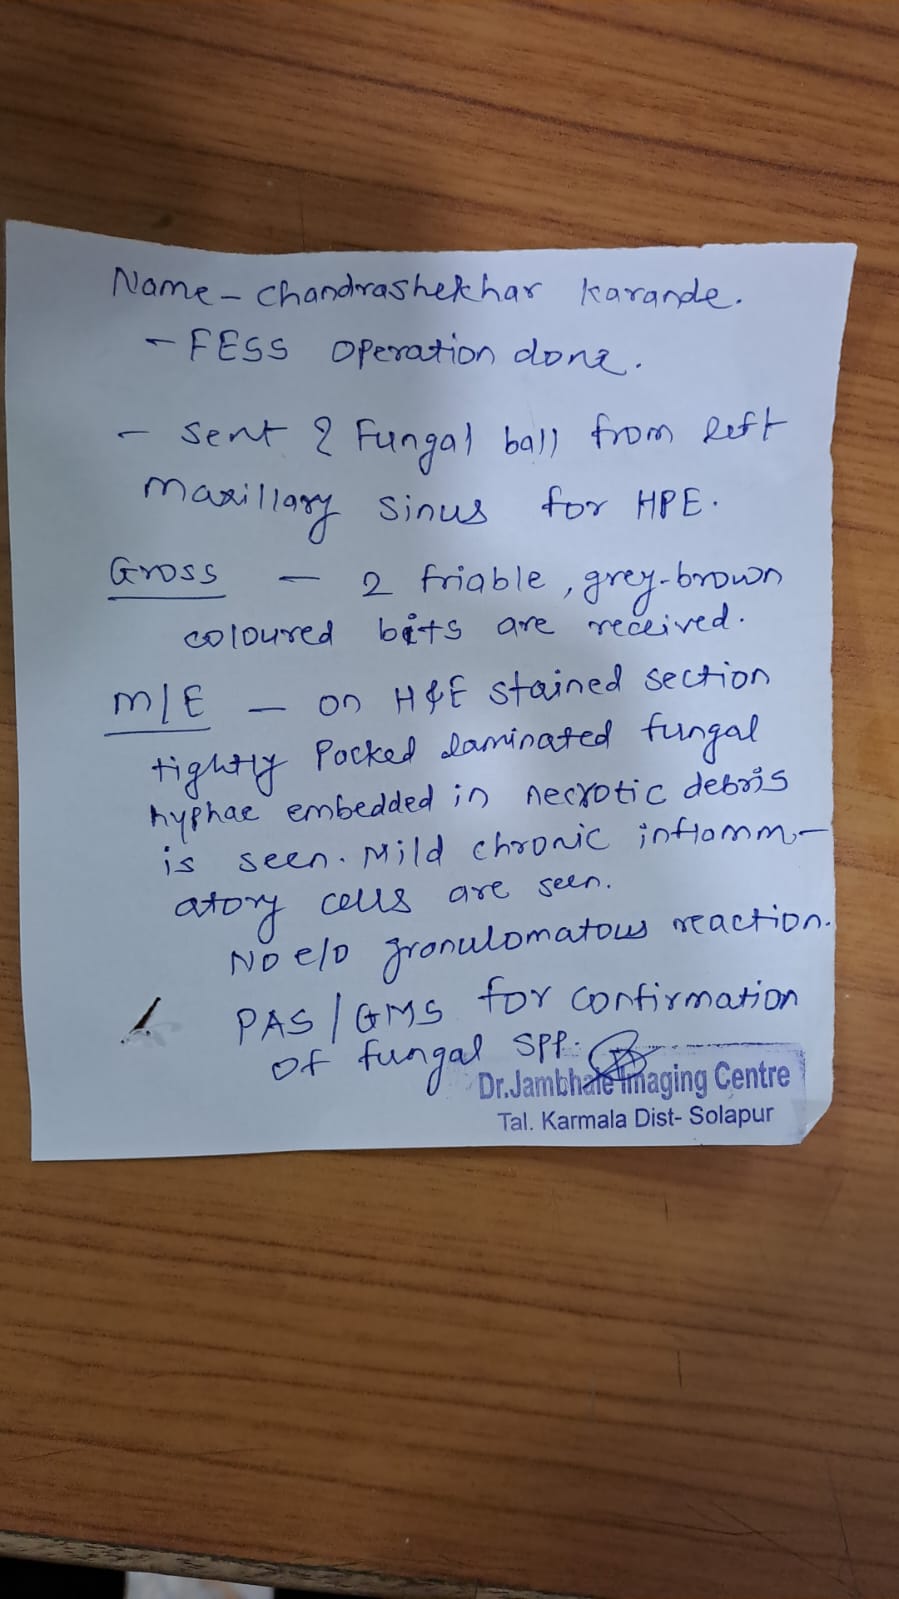 Name - Chandrashekhar Karande.
- FESS operation done.
- sent ? Fungal ball from left
maxillary sinus for HPE.
Gross - 2 friable, grey-brown
coloured bits are received.
M/E - on H&E stained section
tightly Packed laminated fungal
hyphae embedded in necrotic debris
is seen. Mild chronic inflamm-
atory cells are seen.
No e/o granulomatous reaction.
PAS/GMS for confirmation
of fungal spp.
Dr.Jambhale Imaging Centre
Tal. Karmala Dist- Solapur